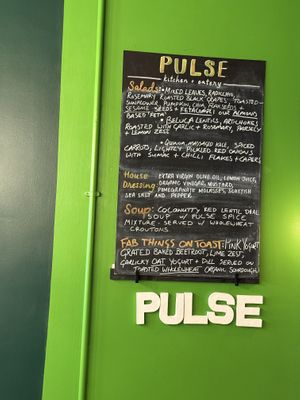 PULSE
kitchen + eatery
Salads: • MIXED LEAVES, RADICCHIO,
ROSEMARY ROASTED BLACK GRAPES, TOASTED
SUNFLOWER, PUMPKIN, CHIA, POPPY SEEDS +
SESAME SEEDS + FETACCIARE! OUR ALMOND
BASED "FETA"
• BELUGA LENTILS, ARTICHOKES
ROASTED WITH GARLIC + ROSEMARY, PARSLEY
+ LEMON ZEST
• QUINOA, MASSAGED KALE, SPICED
CARROTS, LIGHTLY PICKLED RED ONIONS
WITH SUMAC + CHILLI FLAKES + CAPERS
House EXTRA VIRGIN OLIVE OIL, LEMON JUICE,
Dressing ORGANIC VINEGAR, MUSTARD,
POMEGRANATE MOLASSES,
SEA SALT AND PEPPER
Soup: COCONUTTY RED LENTIL DHAL
SOUP W/ PULSE SPICE
MIXTURE - SERVED W/ WHOLEWHEAT
CROUTONS
FAB THINGS ON TOAST: PINK YOGURT
GRATED BAKED BEETROOT, LIME ZEST,
GARLICKY OAT YOGURT + DILL SERVED ON
TOASTED WHOLEWHEAT ORGANIC SOURDOUGH
PULSE